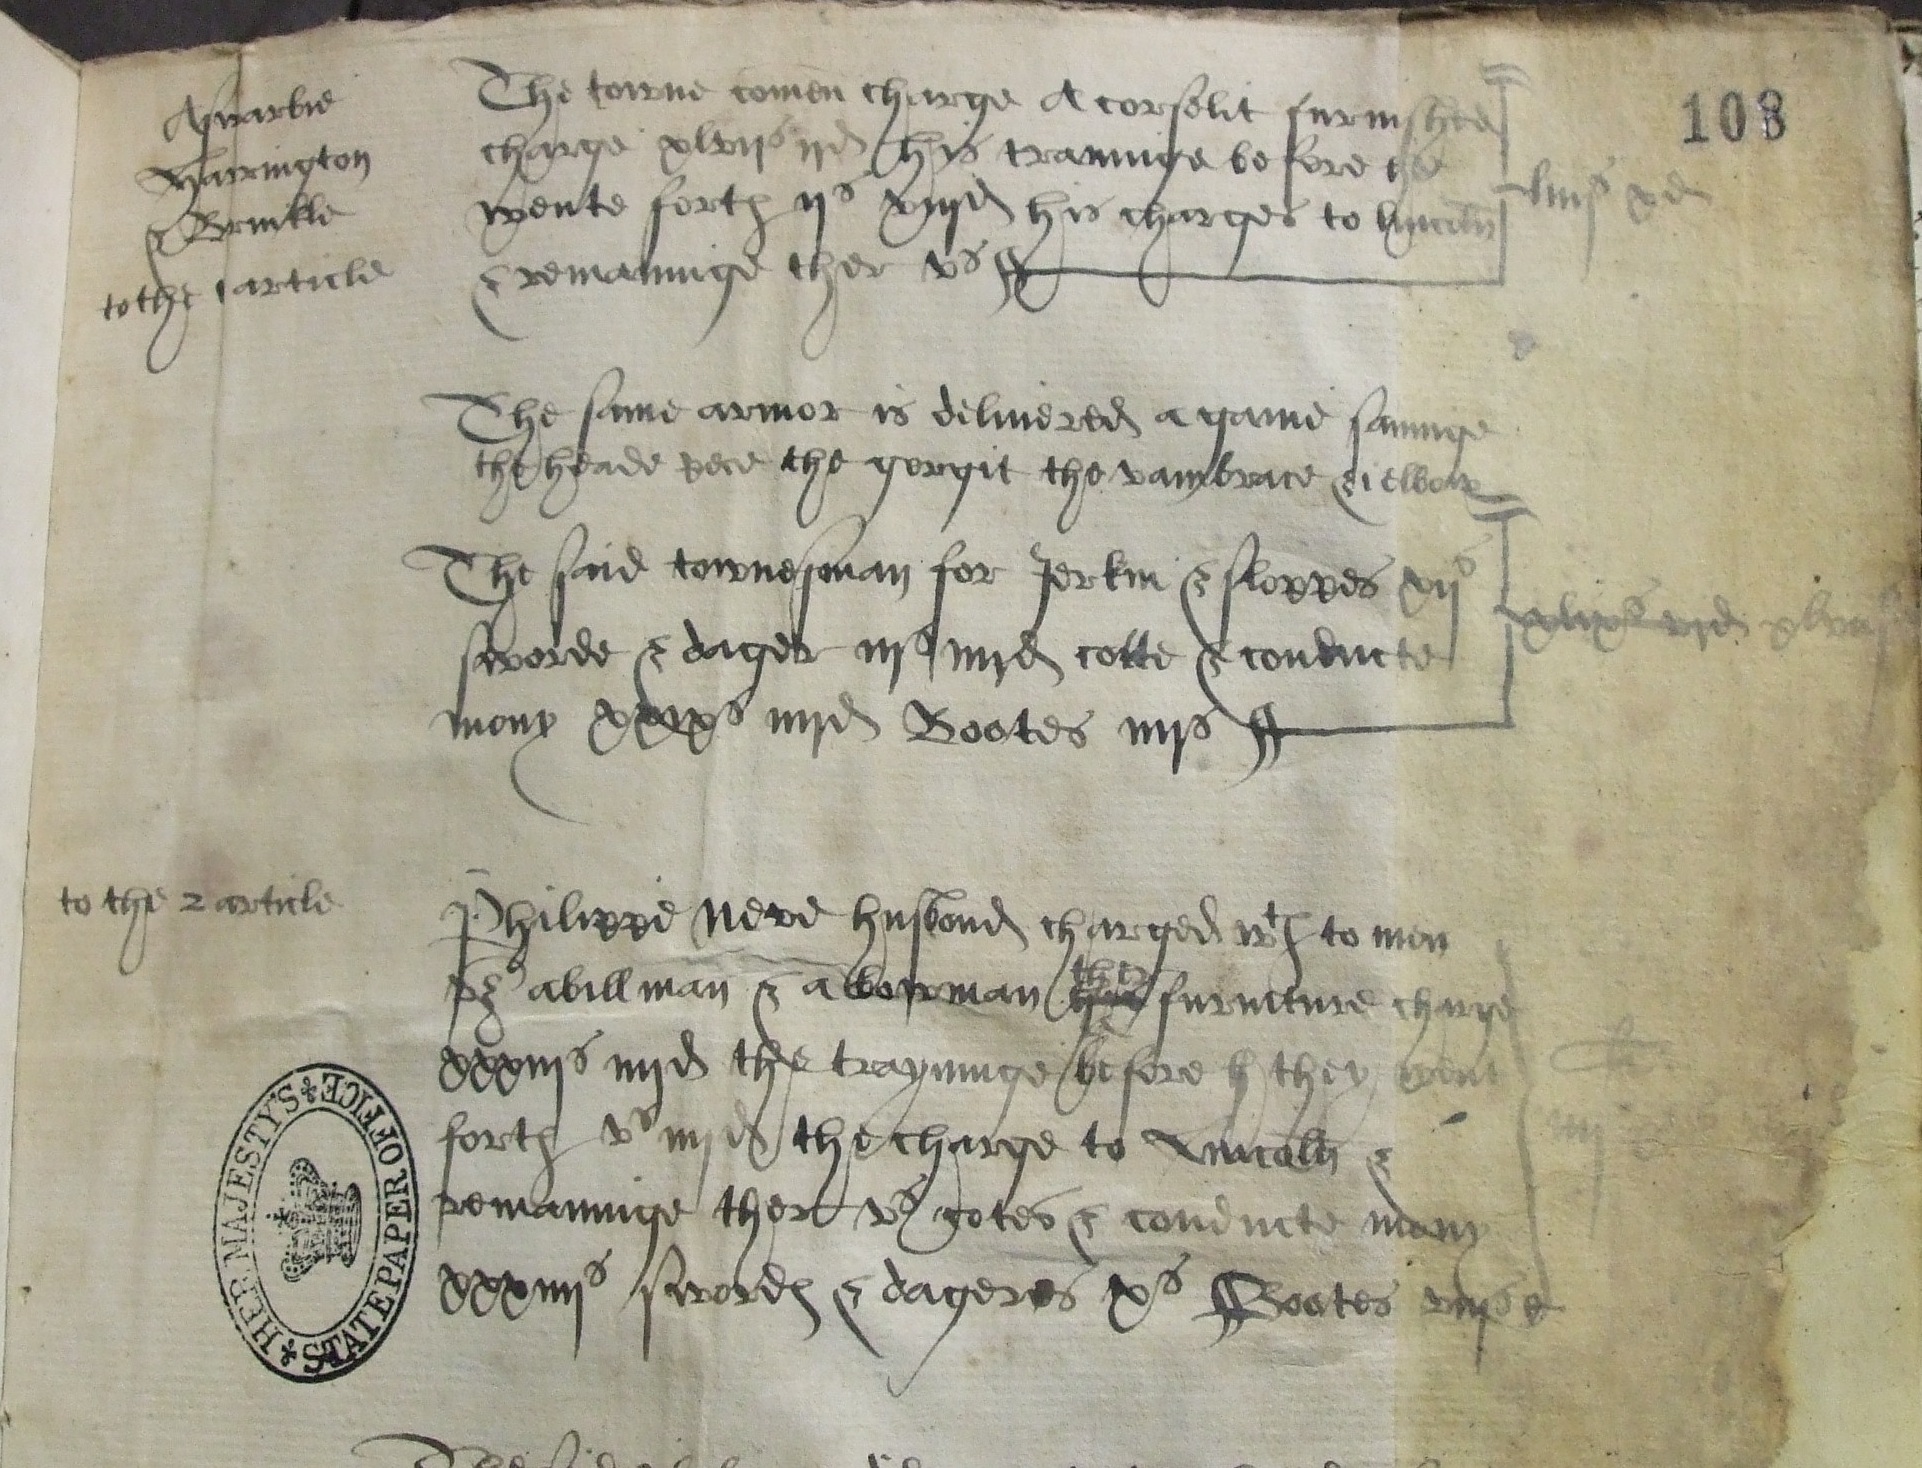 108
Aswarbie
Tharrington
& Brinkle
to the 1 article
The towne comen charge A corselit furnished
charge xlviis iid his traninge before he
wente forth iis viiid his charges to lincoln
& remaninge ther vs
liiiis xd
The same armor is delivered a gaine savinge
the heade pece the gorgit the vambrace & i elbow
The said townesman for Jerkin & sloppes xiis
sworde & dager iiis iiiid cotte & conducte
mony xxixs iiiid Bootes iiiis
xlixs viiid
to the 2 article
Philippe Neve husbond charged wth to men
vz a bill man & a bowman ther furniture charge
xxxiiis iiiid the trayninge before h they went
forth vs iiiid the charge to Lincoln &
remaninge ther vs cotes & conducte mony
xxxiiiis swordes & dageres xs Bootes viiis
HER MAJESTY'S STATE PAPER OFFICE